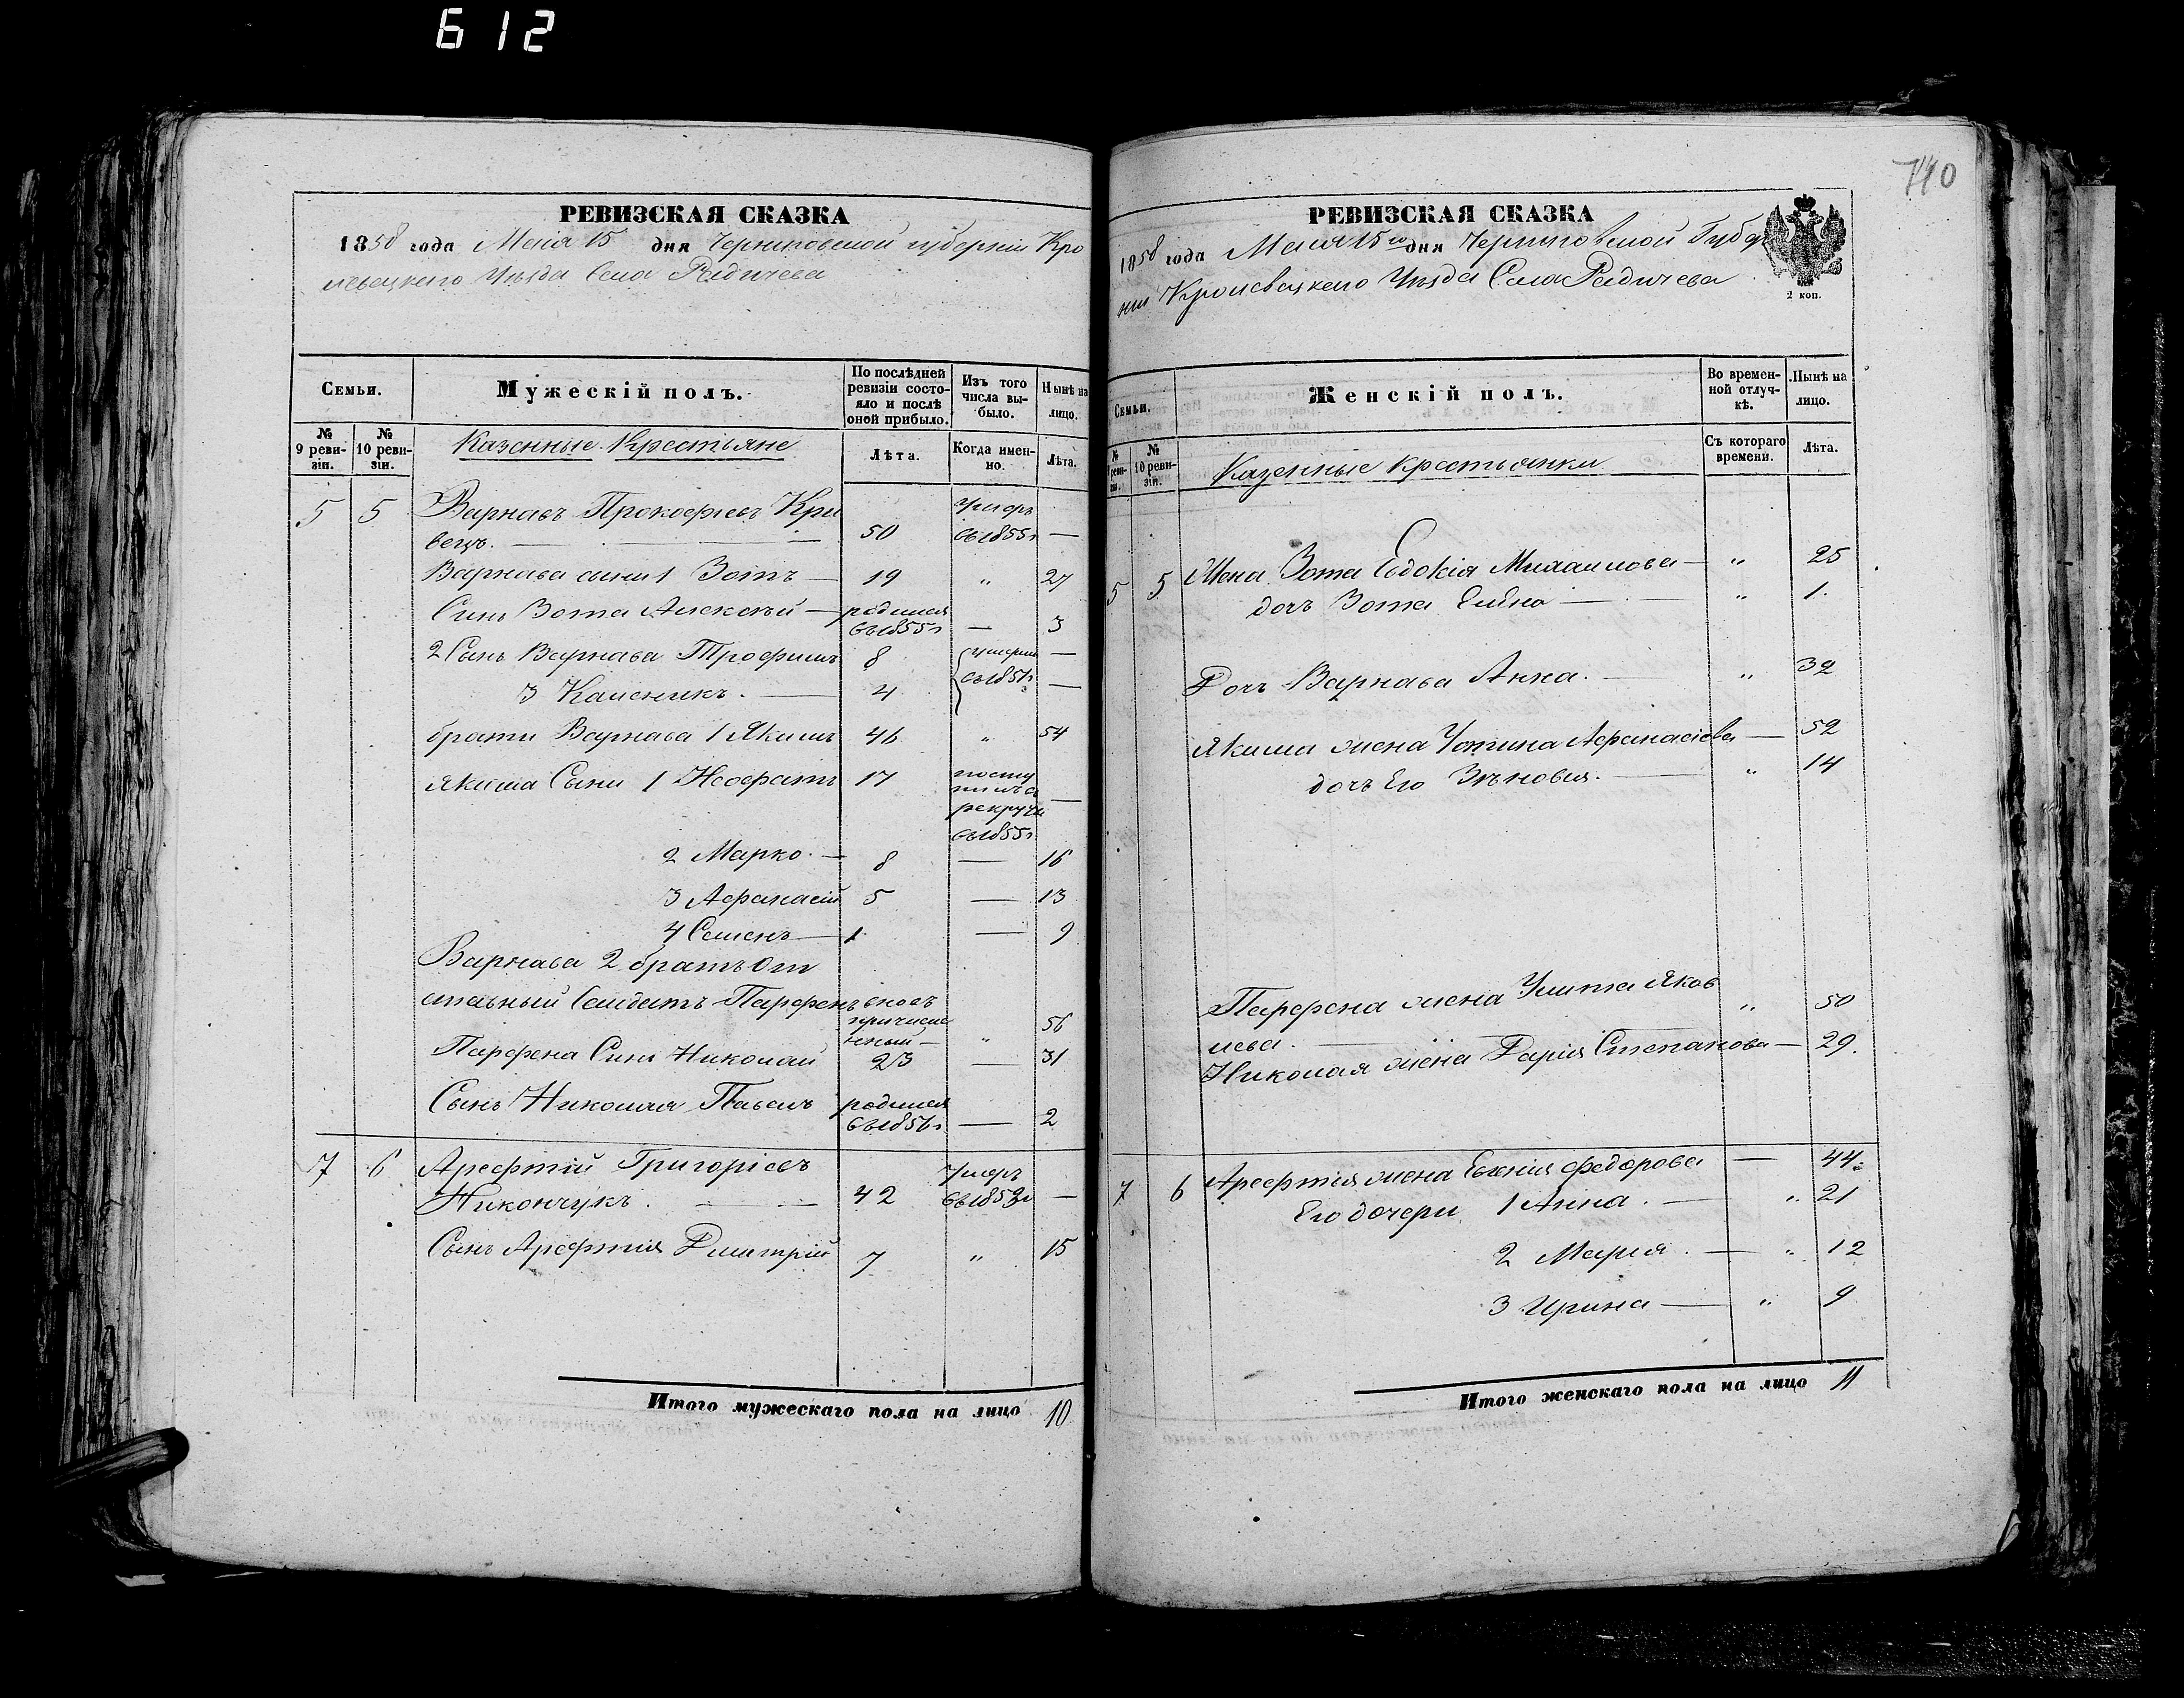 612
740
РЕВИЗСКАЯ СКАЗКА
1858 года Маія 15 дня Черниговской губерніи Кро
левецкаго Уѣзда Села Радичева
Семьи.
Мужескій полъ.
По послѣдней ревизіи состояло и послѣ оной прибыло.
Изъ того числа выбыло.
Нынѣ на лицо.
№ 9 ревизіи.
№ 10 ревизіи.
Казенные Крестьяне
Лѣта.
Когда именно.
Лѣта.
5 5 Варнавъ Прокофіевъ Кри
вецъ. — 50 Умеръ въ 1855г —
Варнава сыни 1 Зотъ — 19 " 27
Синъ Зота Алексѣй — родился въ 1855г — 3
2 Сынъ Варнава Трофимъ 8 умерли —
3 Калсникъ. — 4 въ 1851г —
брати Варнава 1 Якимъ 46 " 54
Якима Сыни 1 Неофитъ 17 посту
пилъ в
рекруты —
въ 1855г
2 Марко. — 8 — 16
3 Афанасій 5 — 13
4 Семенъ — 1 — 9
Варнава 2 братъ От
ставный Солдатъ Парфенъ вновь
причисле
нный — " 56
Парфена Синъ Николай 23 — 31
Сынъ Николая Павелъ родился
въ 1856г — 2
7 6 Арефтій Григоріевъ
Никончукъ. — 42 Умеръ въ 1853г —
Сынъ Арефтія Дмитрій 7 " 15
Итого мужескаго пола на лицо 10
РЕВИЗСКАЯ СКАЗКА
1858 года Маія 15го дня Черниговской Губер
ніи Кролевецкаго Уѣзда Села Радичева
2 коп.
Семьи.
Женскій полъ.
Во временной отлучкѣ.
Нынѣ на лицо.
№ реви-
№ 10 ревизіи.
Казенные крестьянки
Съ котораго времени.
Лѣта.
5 5 Жена Зота Евдокія Михаилова — " 25
дочъ Зота Елена — " 1.
Дочъ Варнава Анна. — " 32
Якима жена Устина Афанасіева — 52
дочъ Его Зѣновия. — " 14
Парфена жена Улита Яков
лева. — " 50
Николая жена Дарія Степанова — 29.
7 6 Арефтія жена Евгенія Федорова — 44
Его дочери 1 Анна. — " 21
2 Мария. — " 12
3 Ирина — " 9
Итого женскаго пола на лицо 11